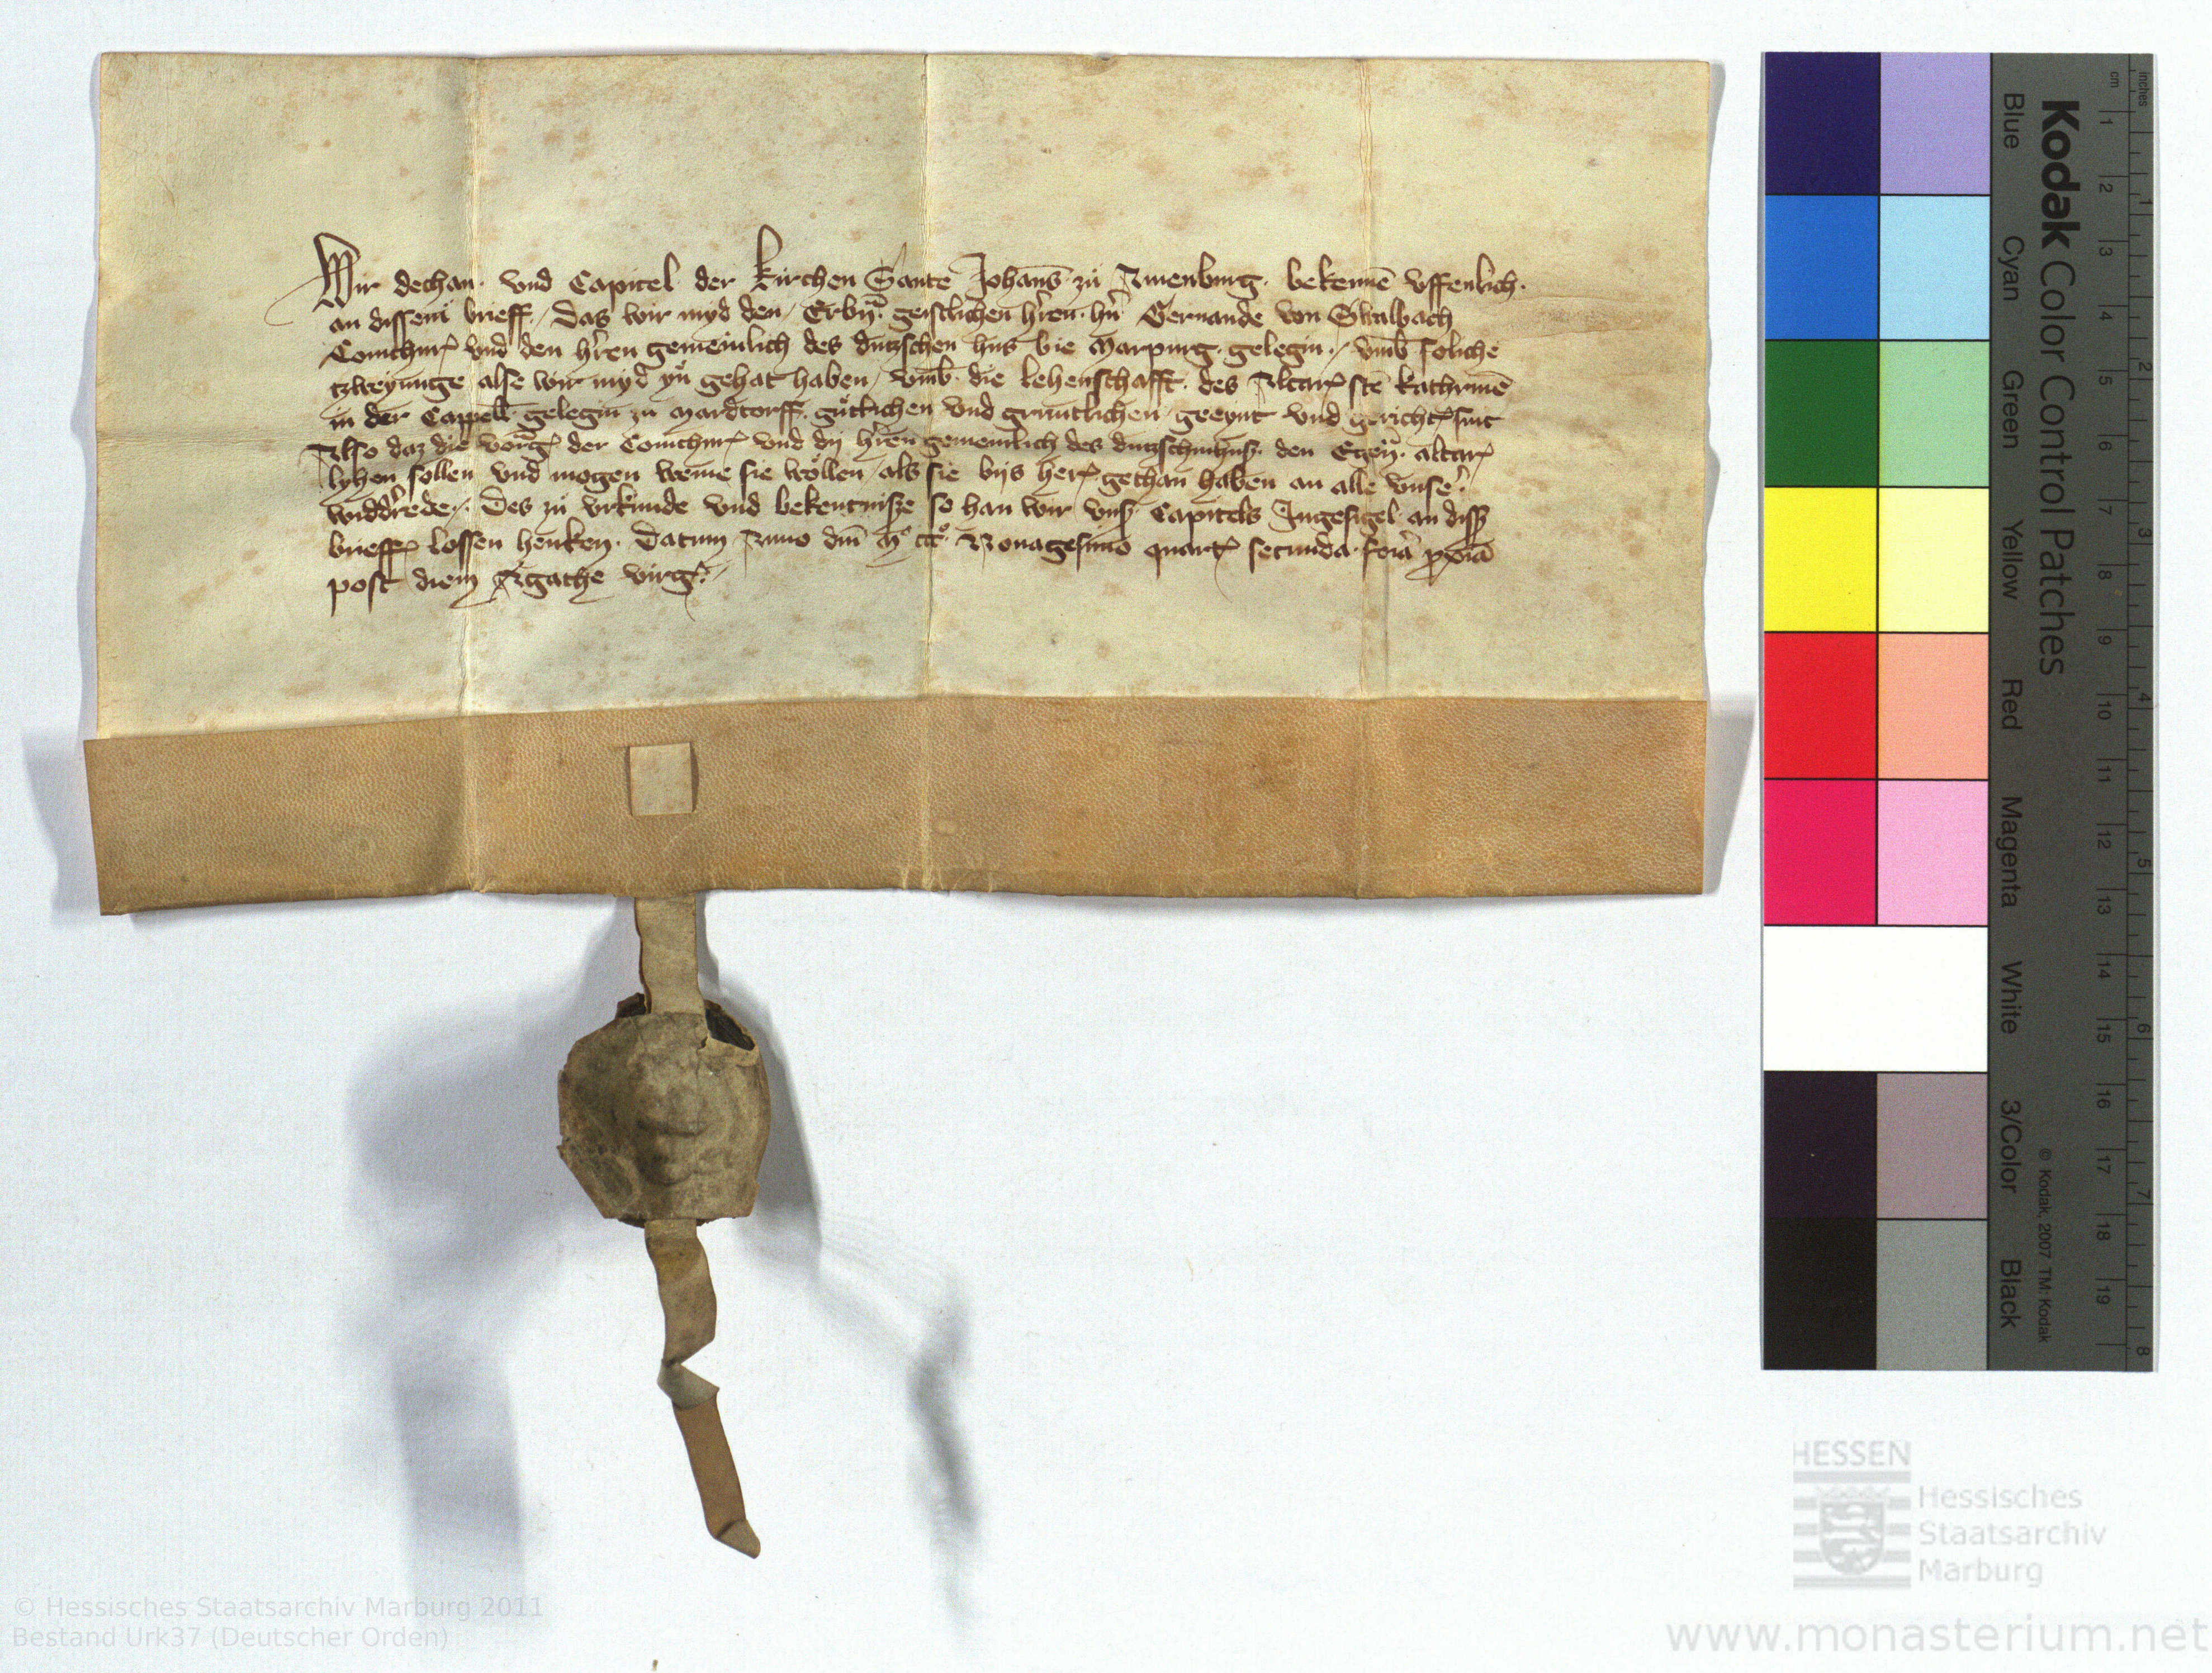 Wir dechan· vnd Capitel der kirchen Sante Johans̄ zů Amenburg· bekennē vffenlich·
an dissem brieff / Das wir myd den / Erbn̄· geistlichen h̓ren· hn̄ Gernande von Swalbach
Comthur vnd den h̓ren gemeinlich des dutzschen hus bie Marpurg· gelegin / vmb soliche
tzweyunge alse wir myd yn̊ gehat haben / vmb die lehenschafft· des Altar stē kathrinē
in der Cappelle gelegin zu Mardtorff· gůtlichen vnd gruntlichen geeynt vnd gericht sint
Also daz die vorg der Comthur vnd dy h̓ren gemeinlich des dutzschinhus· den Egen̄· altar
lyhen sollen vnd mogen weme sie wollen / als sie bys her gethan haben an alle vnse͛·
widd̓rede· Des zů vrkunde vnd bekentnisze so han wir vns Capitels Ingesigel an diss
brieff lossen henken· Datum Anno dm̄ M° ccc° Nonagesimo quart secunda· feīa ꝓxīa
post diem Agathe virg·
Kodak Color Control Patches
Blue Cyan Green Yellow Red Magenta White 3/Color Black
© Kodak, 2007 TM: Kodak
inches 1 2 3 4 5 6 7 8
cm 1 2 3 4 5 6 7 8 9 10 11 12 13 14 15 16 17 18 19
HESSEN
Hessisches
Staatsarchiv
Marburg
© Hessisches Staatsarchiv Marburg 2011
Bestand Urk37 (Deutscher Orden)
www.monasterium.net